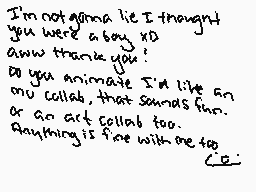 I'm not gonna lie I thought
you were a boy XD
aww thank you!
Do you animate I'd like an
mv collab, that sounds fun.
or an art collab too.
Anything is fine with me too